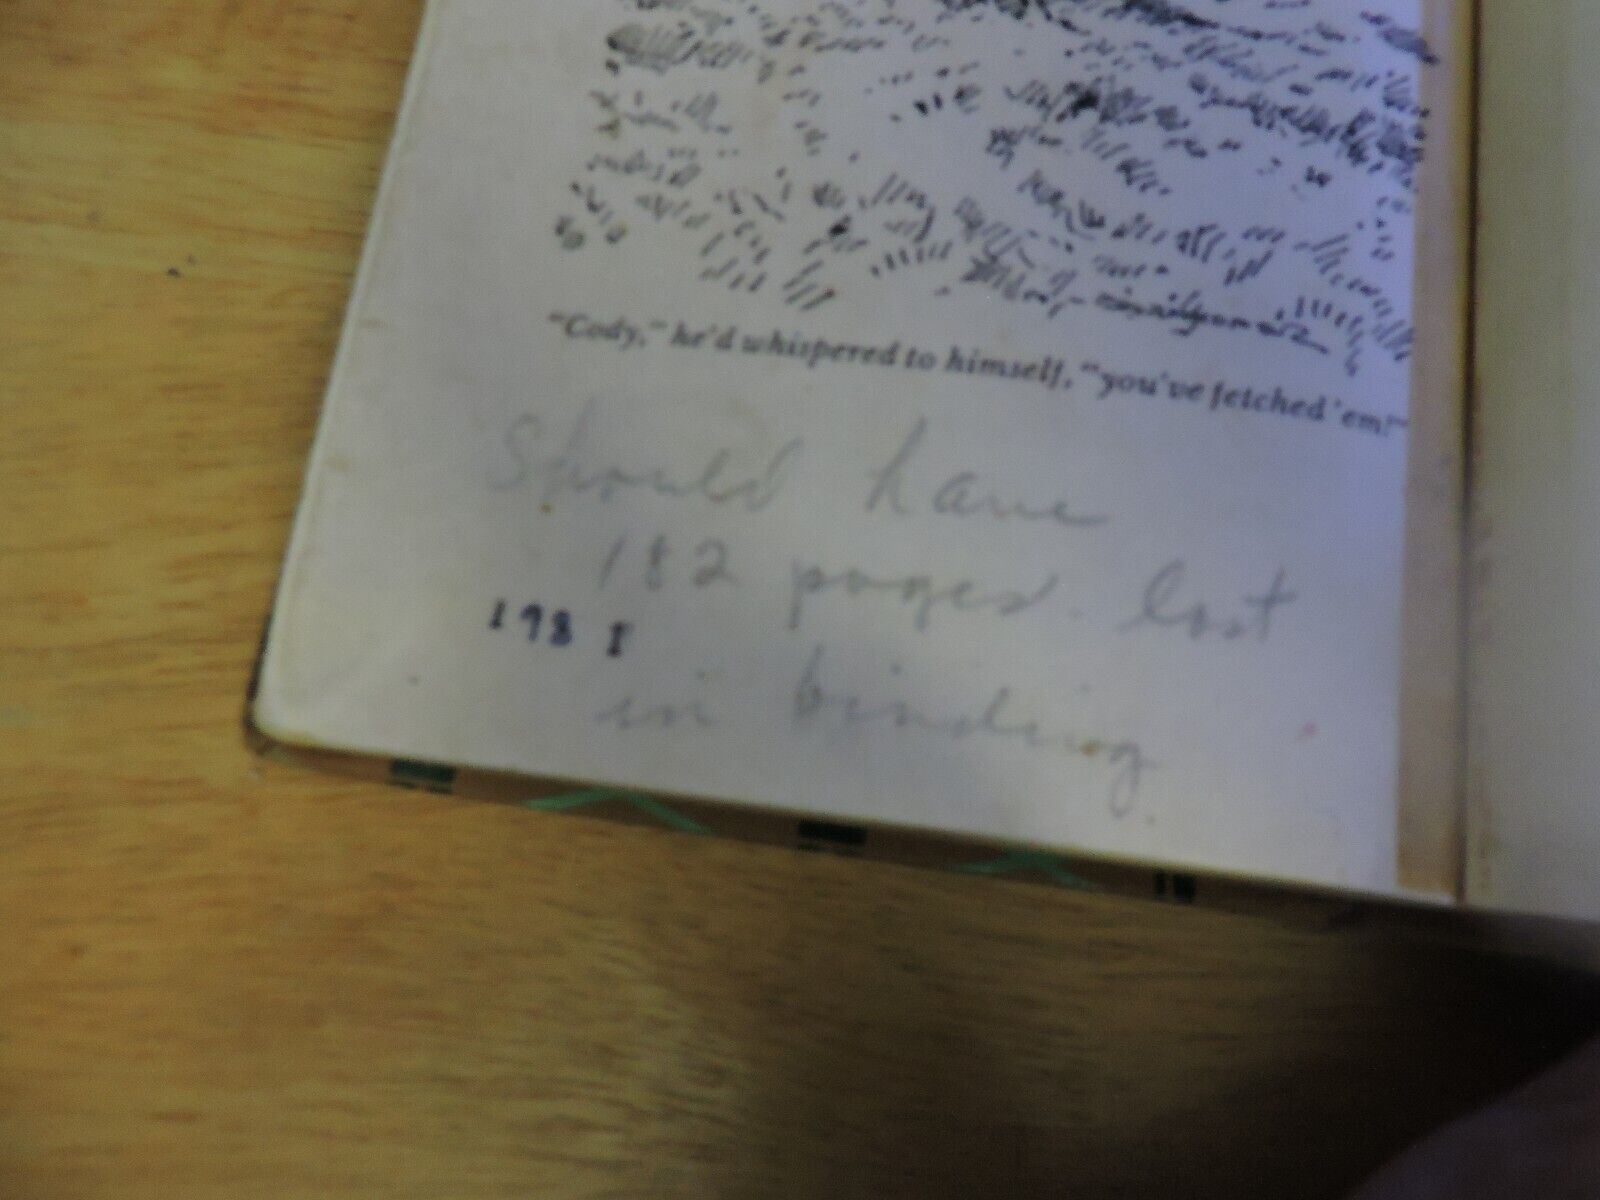 "Cody," he'd whispered to himself, "you've fetched 'em!"
Should have
182 pages. lost
198 I
in binding.